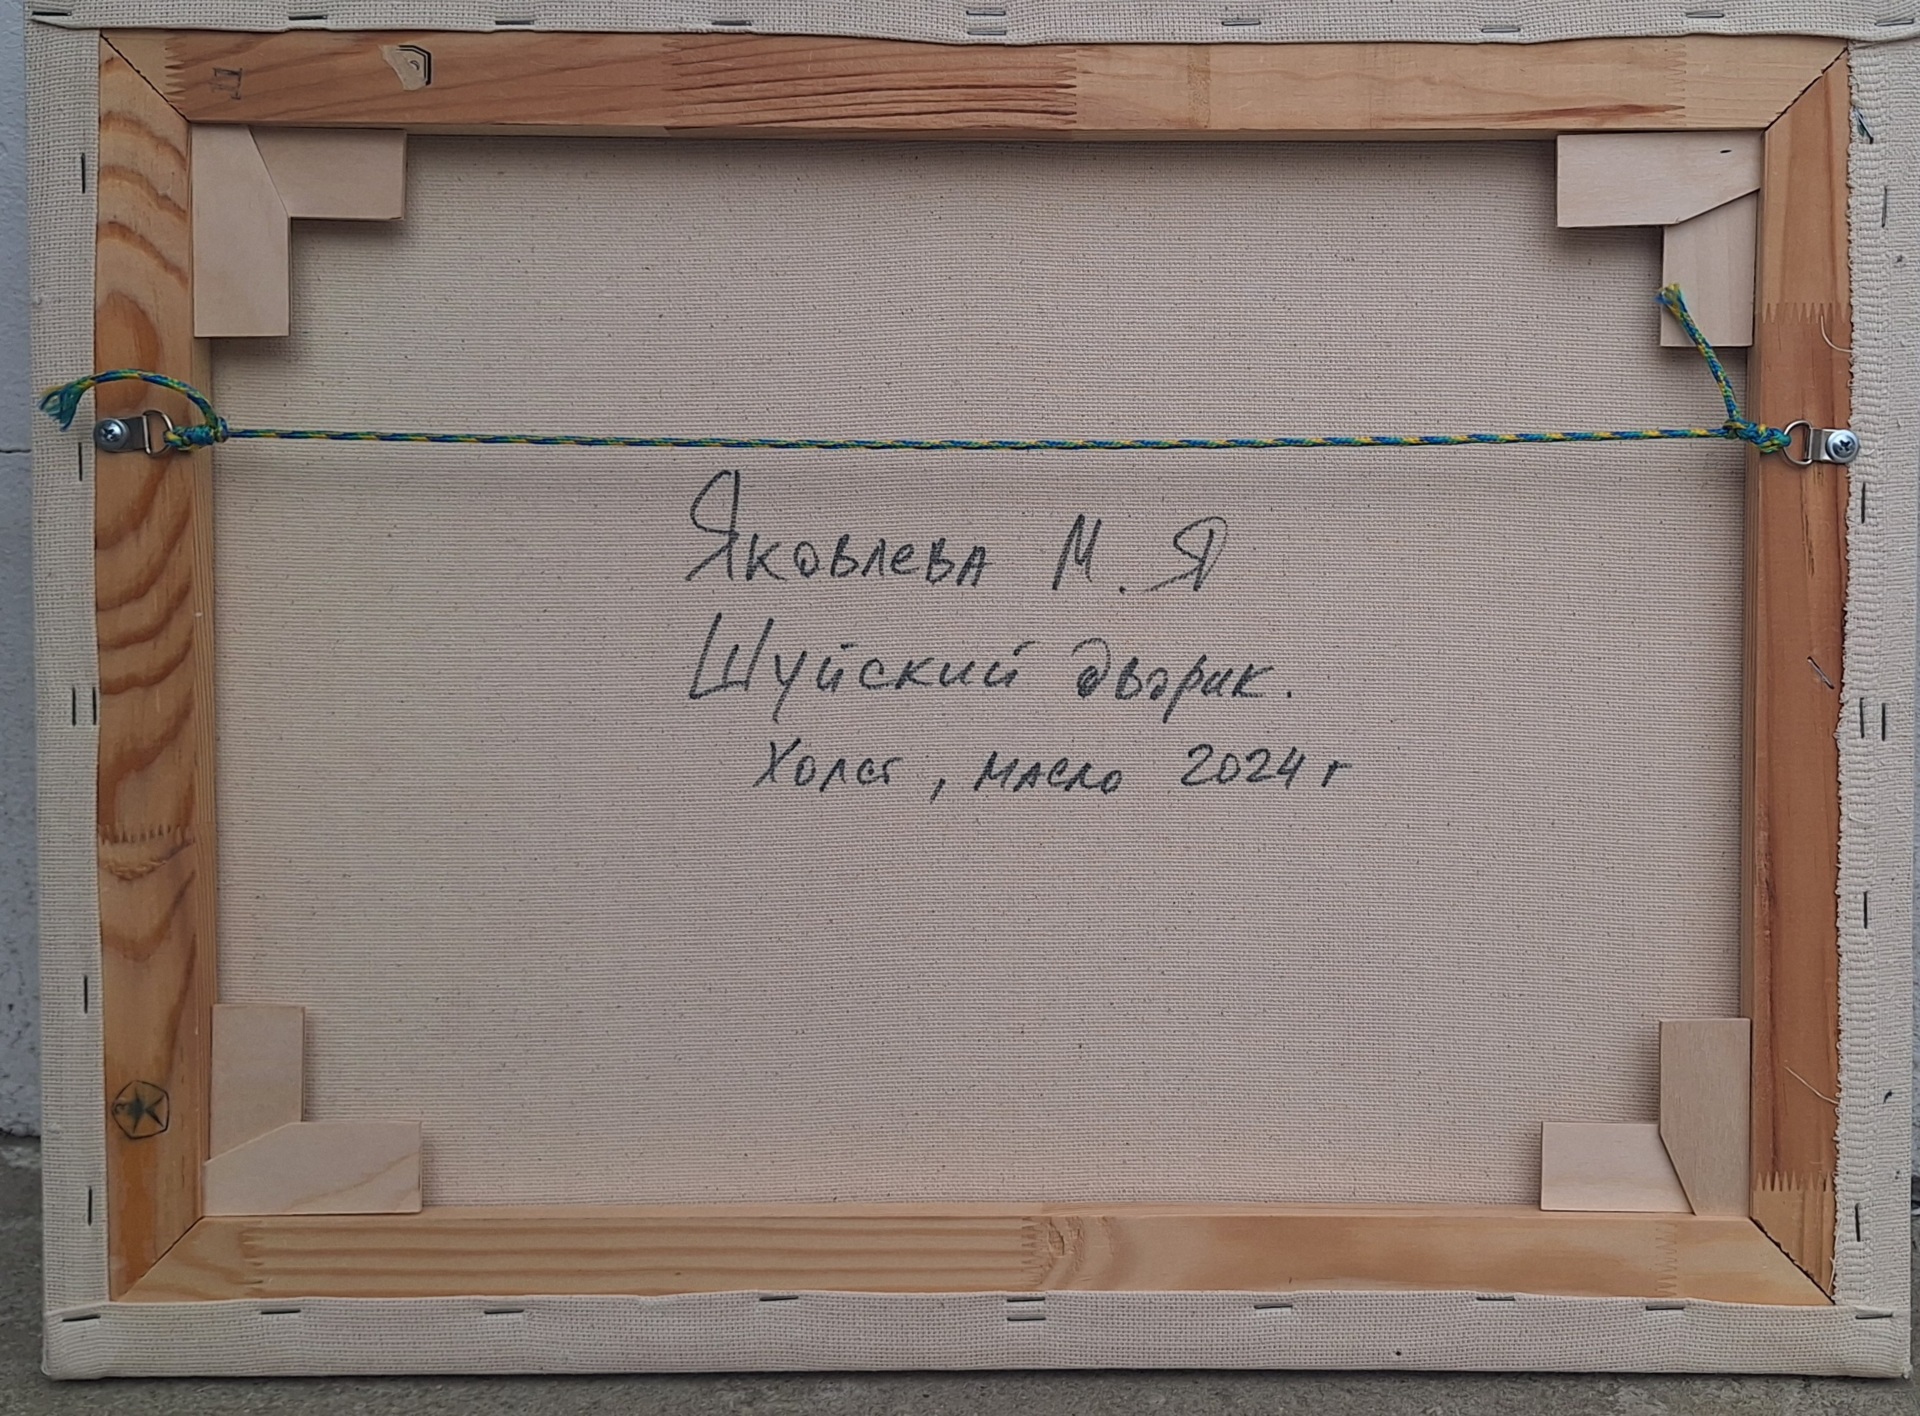 Яковлева М. Я
Шуйский дворик.
Холст, масло 2024 г